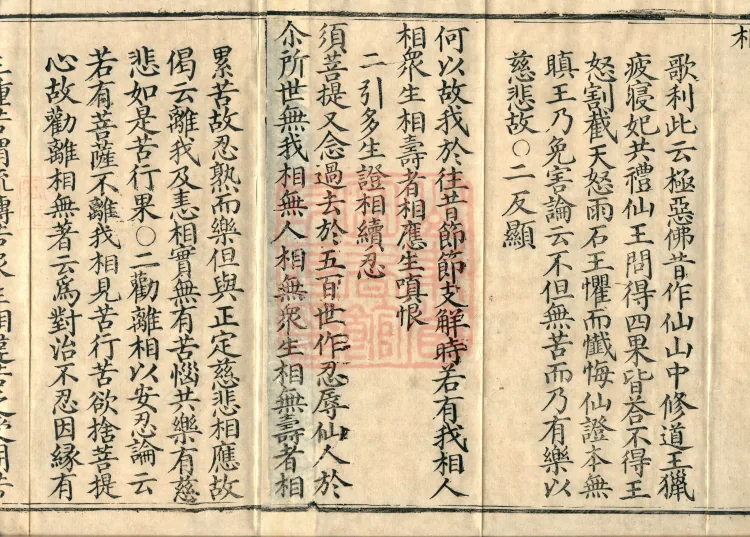 相
歌利此云極惡佛昔作仙山中修道王獵
疲寢妃共禮仙王問得四果皆荅不得王
怒割截天怒雨石王懼而懺悔仙證本無
瞋王乃免害論云不但無苦而乃有樂以
慈悲故○二反顯
何以故我於往昔節節支解時若有我相人
相衆生相壽者相應生嗔恨
二引多生證相續忍
須菩提又念過去於五百世作忍辱仙人於
尒所世無我相無人相無衆生相無壽者相
累苦故忍熟而樂但與正定慈悲相應故
偈云離我及恚相實無有苦惱共樂有慈
悲如是苦行果○二勸離相以安忍論云
若有菩薩不離我相見苦行苦欲捨菩提
心故勸離相無著云爲對治不忍因緣有
三種苦謂流轉苦衆生相違苦乏受用苦